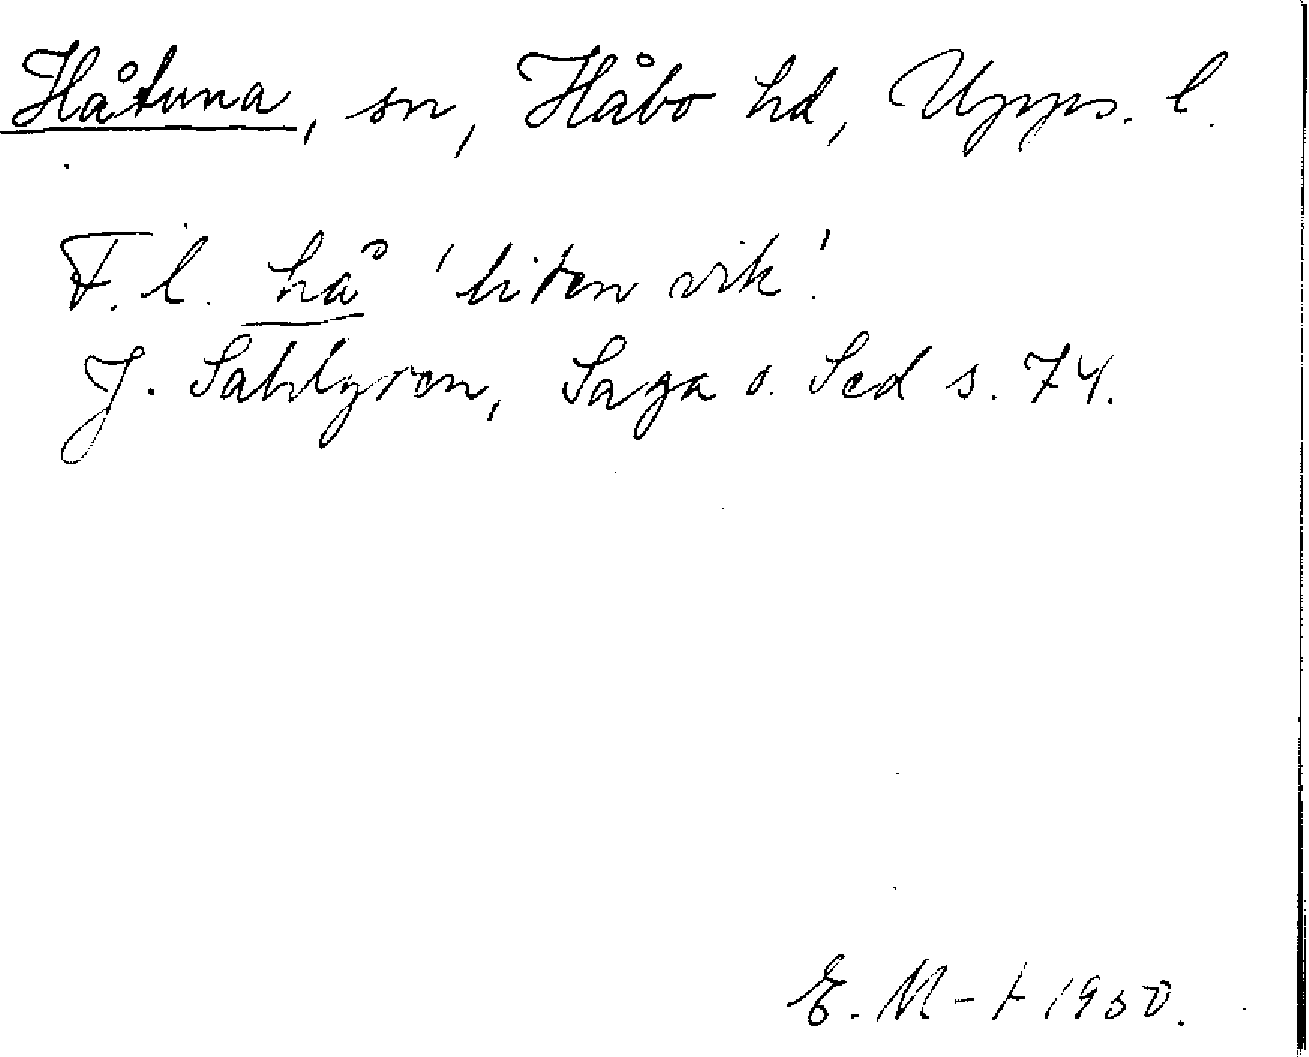 Håtuna, sn, Håbo hd, Upps. l.
F. l. hå 'liten vik'.
J. Sahlgren, Saga o. Sed s. 74.
E. M-t 1950.